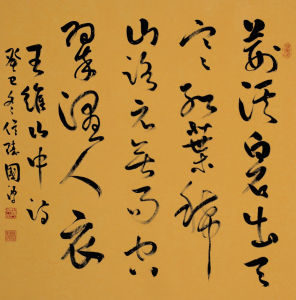 荊溪白石出天
寒紅葉稀
山路元無雨空
翠濕人衣
王維山中詩
癸巳冬國